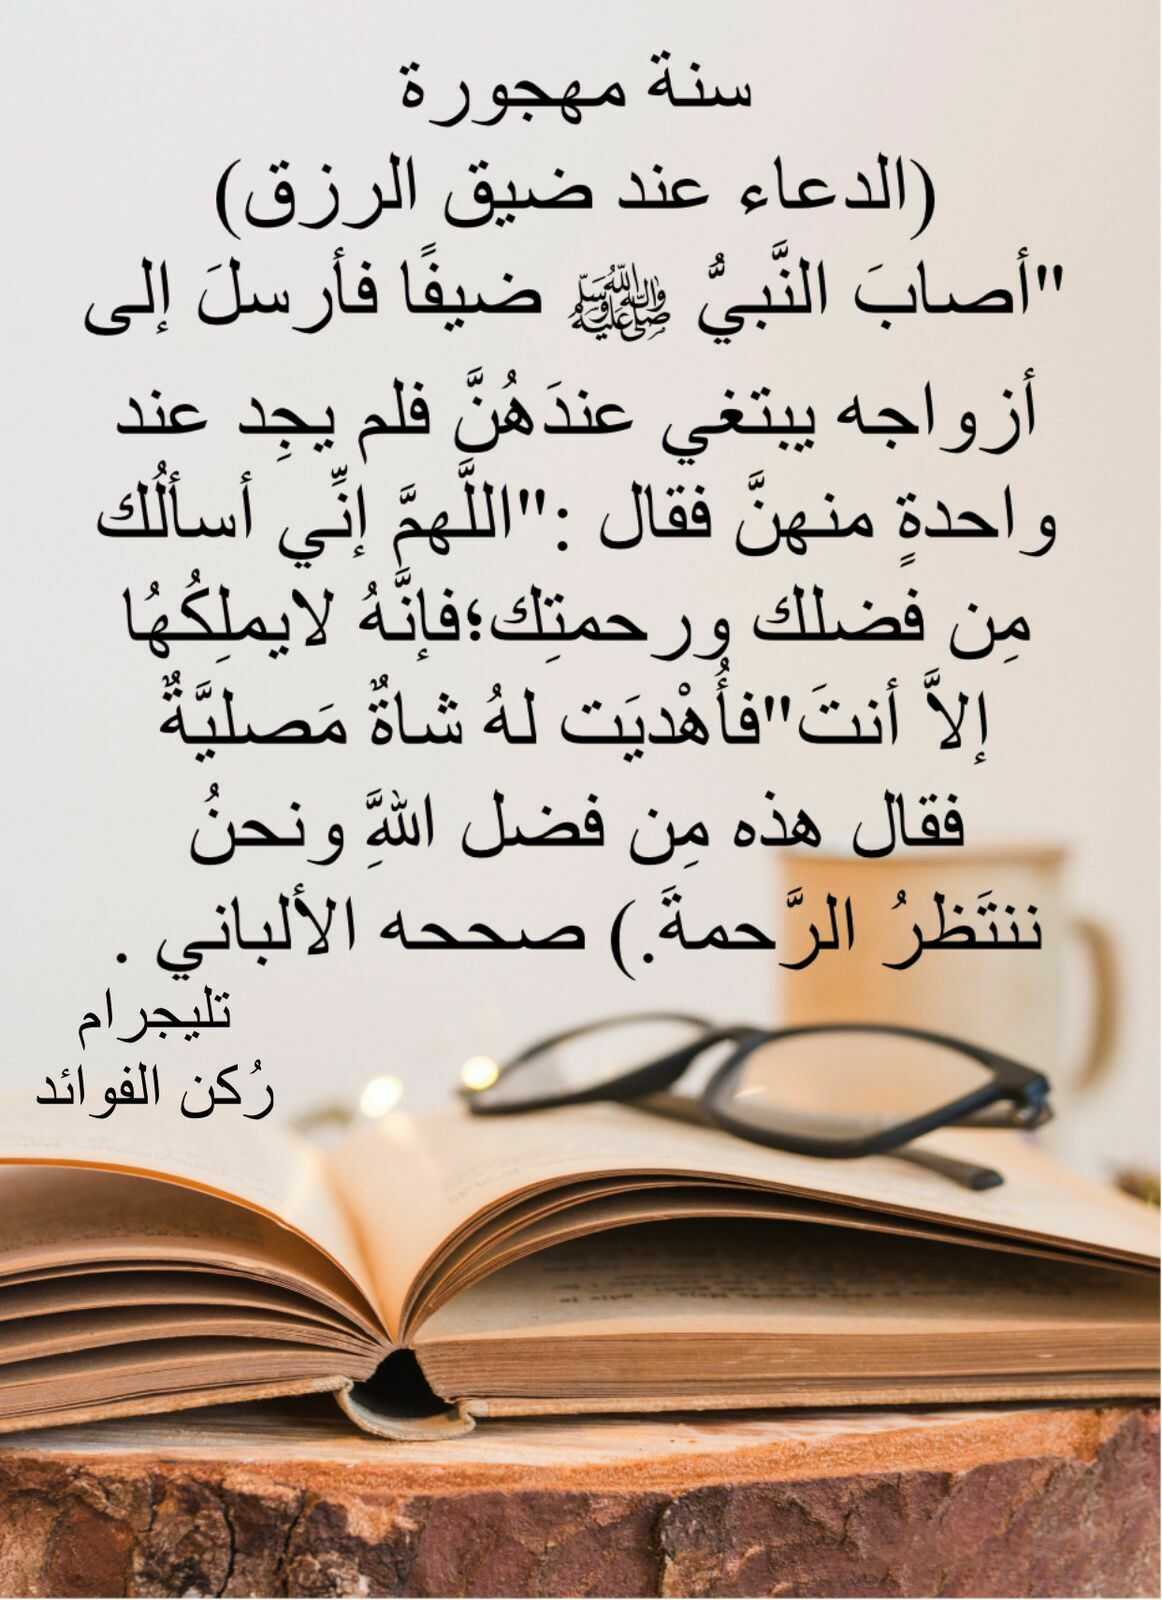 سنة مهجورة
(الدعاء عند ضيق الرزق)
"أصابَ النَّبيُّ ﷺ ضيفًا فأرسلَ إلى
أزواجه يبتغي عندَهُنَّ فلم يجِد عند
واحدةٍ منهنَّ فقال :"اللَّهمَّ إنِّي أسألُك
مِن فضلك ورحمتِك؛فإنَّهُ لايملِكُهُا
إلاَّ أنتَ"فأُهْديَت لهُ شاةٌ مَصليَّةٌ
فقال هذه مِن فضل اللَّهِ ونحنُ
ننتَظرُ الرَّحمةَ.) صححه الألباني .
تليجرام
رُكن الفوائد